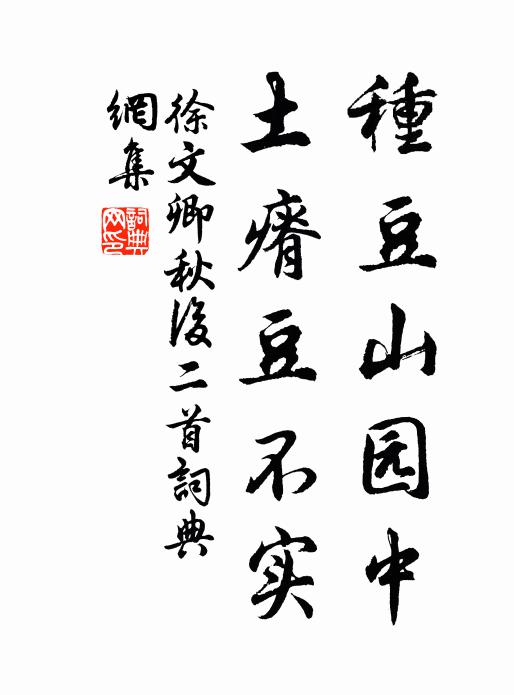 種豆山园中
土瘠豆不实
徐文卿秋後二首詞典
網集
詞典
网印